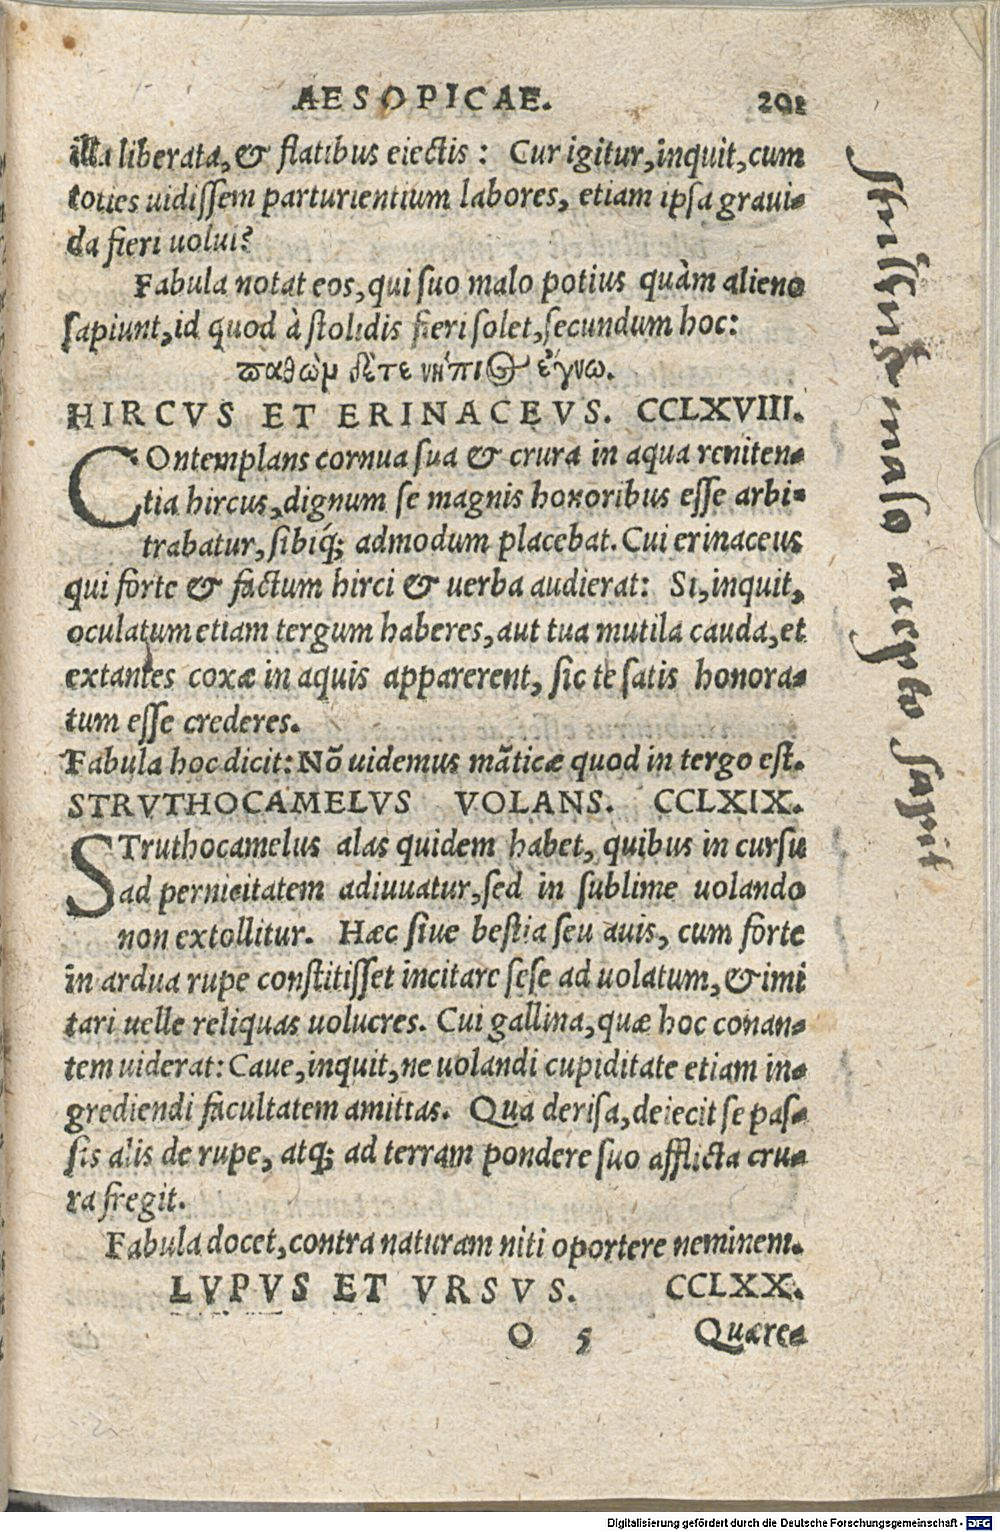 AESOPICAE. 201
illa liberata, & flatibus eiectis: Cur igitur, inquit, cum
toties uidissem parturientium labores, etiam ipsa graui-
da fieri uolui?
Fabula notat eos, qui suo malo potius quàm alieno
sapiunt, id quod à stolidis fieri solet, secundum hoc:
παθὼμ δέτε νήπιος ἔγνω.
HIRCVS ET ERINACEVS. CCLXVIII.
COntemplans cornua sua & crura in aqua reniten-
tia hircus, dignum se magnis honoribus esse arbi-
trabatur, sibiq́; admodum placebat. Cui erinaceus
qui forte & factum hirci & uerba audierat: Si, inquit,
oculatum etiam tergum haberes, aut tua mutila cauda, et
extantes coxæ in aquis apparerent, sic te satis honora-
tum esse crederes.
Fabula hoc dicit: Nõ uidemus mãticæ quod in tergo est.
STRVTHOCAMELVS VOLANS. CCLXIX.
STruthocamelus alas quidem habet, quibus in cursu
ad pernicitatem adiuuatur, sed in sublime uolando
non extollitur. Hæc siue bestia seu auis, cum forte
in ardua rupe constitisset incitare sese ad uolatum, & imi
tari uelle reliquas uolucres. Cui gallina, quæ hoc conan-
tem uiderat: Caue, inquit, ne uolandi cupiditate etiam in-
grediendi facultatem amittas. Qua derisa, deiecit se pas-
sis alis de rupe, atq; ad terram pondere suo afflicta cru-
ra fregit.
Fabula docet, contra naturam niti oportere neminem.
LVPVS ET VRSVS. CCLXX.
O 5 Quære-
stultus malo accepto sapit
Digitalisierung gefördert durch die Deutsche Forschungsgemeinschaft - DFG